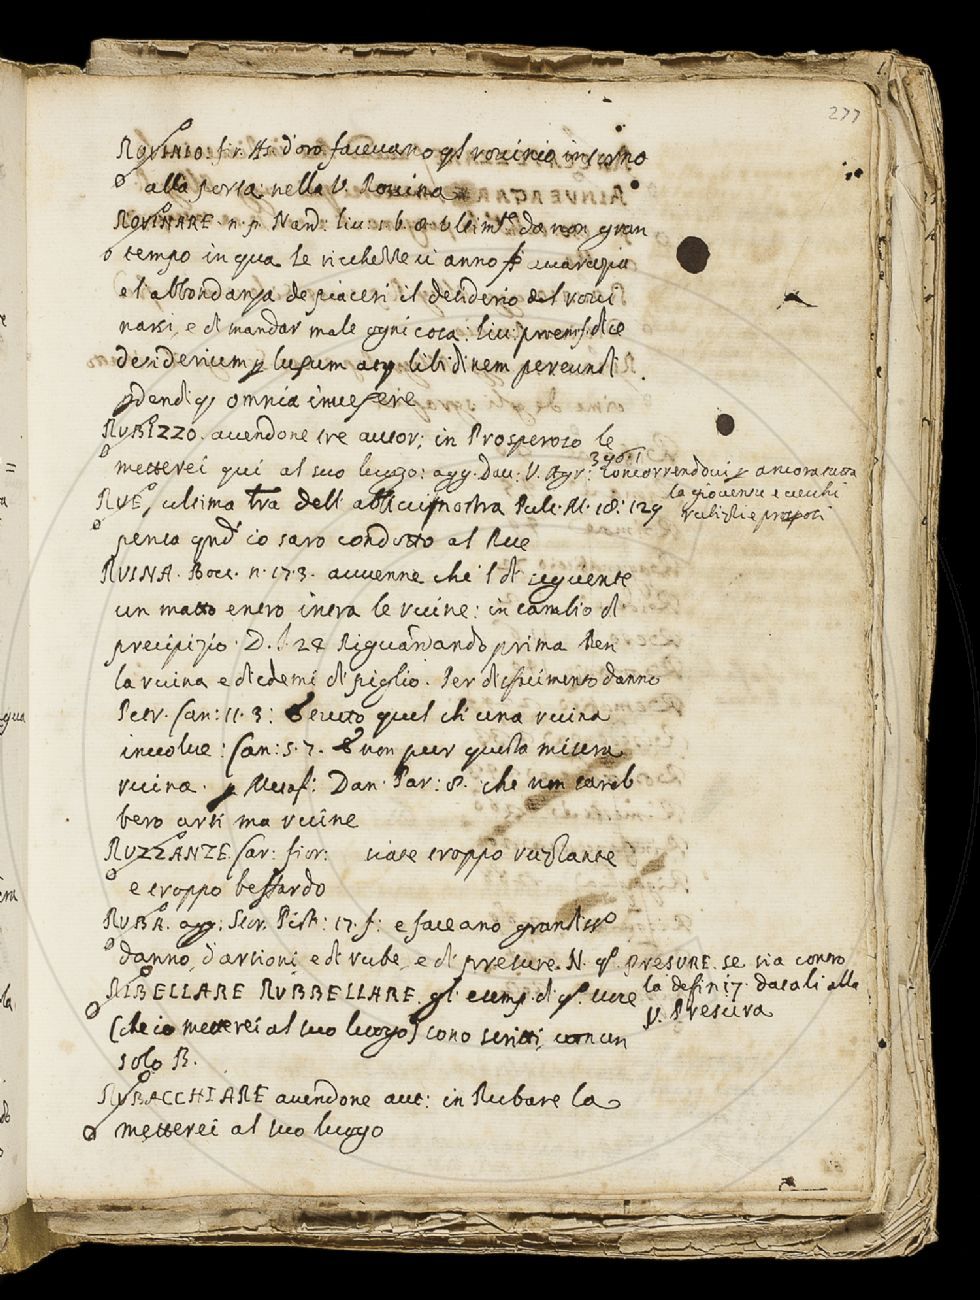 277
ROVINIO: fir. As. d'oro facevano ql rovinio intorno
alla porta: nella V. Rovina
ROVINARE n. p. Nard: liv: 1. b. da non gran
tempo in qua le ricchezze ci anno
e l'abbondanza de piaceri il desiderio del rovi
narsi, e di mandar male ogni cosa: liv: proem:
desiderium p lusum atq libidinem pereundi
pdendiq omnia invexere
RUBIZZO. avendone tre autor; in Prosperoso le
metterei qui al suo luogo: agg. Dav. V. Agr: 390. 1 Concorrendovi ancora tutta
la gioventù e vecchi
rubizzi e prosperosi
RUE, ultima dell' abbicci nostra Pule. M: 18: 129
pensa io saro condotto al Rue
RUINA. Bocc. n. 17. 3. avvenne che l di seguente
un matto entrò intra le ruine: in cambio di
precipizio. D. I. 24 Riguardando prima Ben
la ruina e diedemi di piglio. Per disfacimento danno
Petr. Can: 11. 3: tutto quel ch' una ruina
involve: Can: 5. 7. E non pur questa misera
ruina. p Metaf: Dan. Par: 8. che non sareb
bero arti ma ruine
RUZZANTE Sav: fior: siate troppo ruzzante
e troppo beffardo
RUBA. agg: Stor. Pist: 17. f: e faceano grandiss°
danno, d'arsioni e di rube, e di presure. N. q PRESURE se sia contro
la defin 17. dasali alla
V. Presura
RIBELLARE RUBBELLARE. gl' esemp. di q. voce
(che io metterei al suo luogo) sono scritti con un
solo B.
RUBACCHIARE avendone aut: in Rubare la
metterei al suo luogo